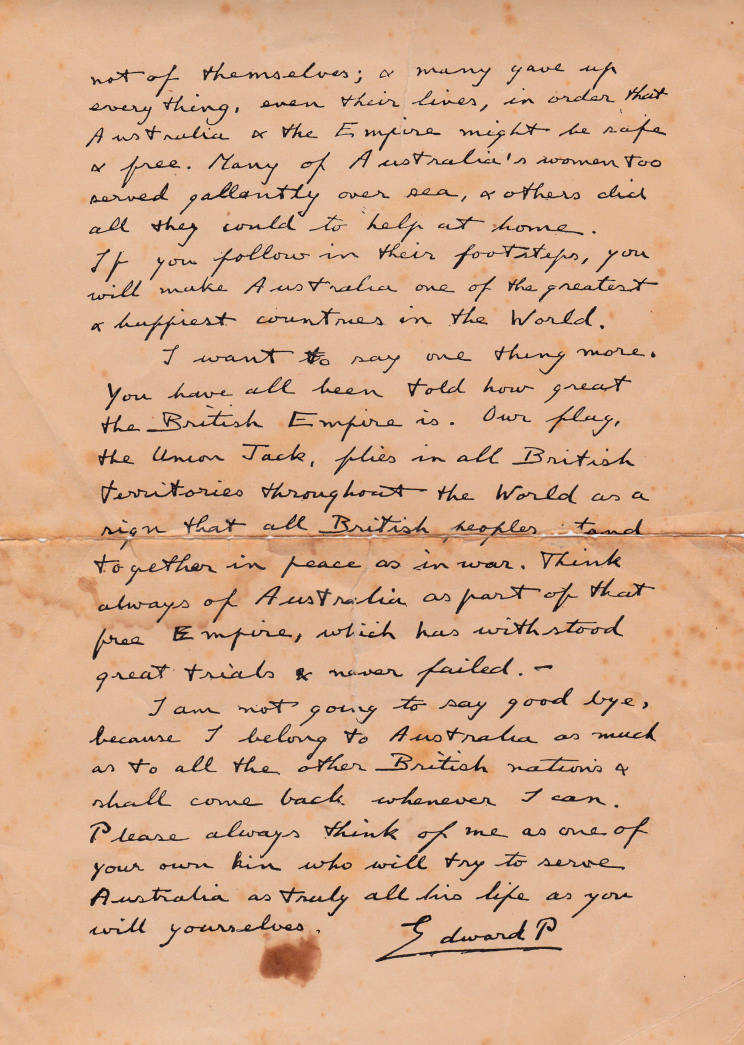 not of themselves; & many gave up
everything, even their lives, in order that
Australia & the Empire might be safe
& free. Many of Australia's women too
served gallantly over sea, & others did
all they could to help at home.
If you follow in their footsteps, you
will make Australia one of the greatest
& happiest countries in the World.
I want to say one thing more.
You have all been told how great
the British Empire is. Our flag,
the Union Jack, flies in all British
territories throughout the World as a
sign that all British peoples tand
together in peace as in war. Think
always of Australia as part of that
free Empire, which has withstood
great trials & never failed. –
I am not going to say good bye,
because I belong to Australia as much
as to all the other British nations &
shall come back whenever I can.
Please always think of me as one of
your own kin who will try to serve
Australia as truly all his life as you
will yourselves.
Edward P